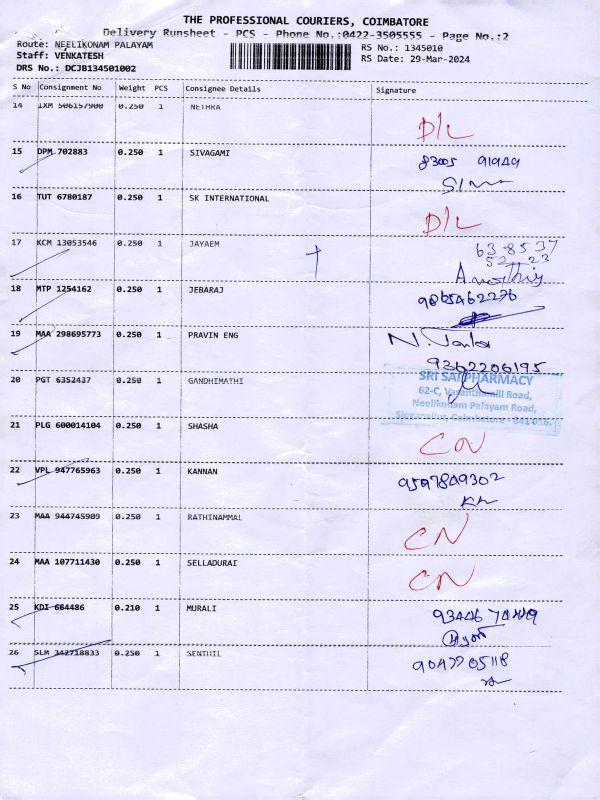 THE PROFESSIONAL COURIERS, COIMBATORE
Delivery Runsheet - PCS - Phone No.:0422-3505555 - Page No.:2
Route: NEELIKONAM PALAYAM
Staff: VENKATESH
DRS No.: DCJB134501002
RS No.: 1345010
RS Date: 29-Mar-2024
S No Consignment No Weight PCS Consignee Details Signature
14 IXM 506157900 0.250 1 NETHRA D/L
15 DPM 702883 0.250 1 SIVAGAMI 83005 91949
16 TUT 6780187 0.250 1 SK INTERNATIONAL D/L
17 KCM 13053546 0.250 1 JAYAEM 638537
5223
18 MTP 1254162 0.250 1 JEBARAJ 9865462276
19 MAA 298695773 0.250 1 PRAVIN ENG
9362206195
20 PGT 6352437 0.250 1 GANDHIMATHI SRI SAI PHARMACY
62-C, Vasanthamill Road,
Neelikonam Palayam Road,
Singanallur, Coimbatore - 641 016.
21 PLG 600014104 0.250 1 SHASHA CN
22 VPL 947765963 0.250 1 KANNAN 9597849302
23 MAA 944745909 0.250 1 RATHINAMMAL CN
24 MAA 107711430 0.250 1 SELLADURAI CN
25 KDI 664486 0.210 1 MURALI
26 SLM 342718833 0.250 1 SENTHIL 9047705118